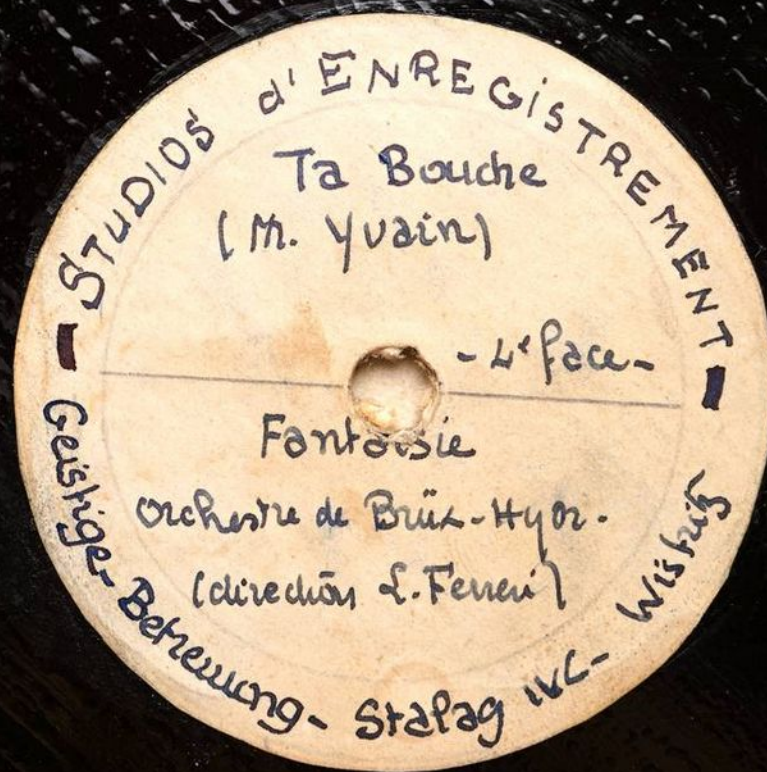 STUDIOS d'ENREGISTREMENT
Ta Bouche
(M. Yvain)
- 4e face -
Fantaisie
Orchestre de Brüx-Hydr.
(direction L. Ferreri)
Geistige-Betreuung- Stalag IVC- Wistritz